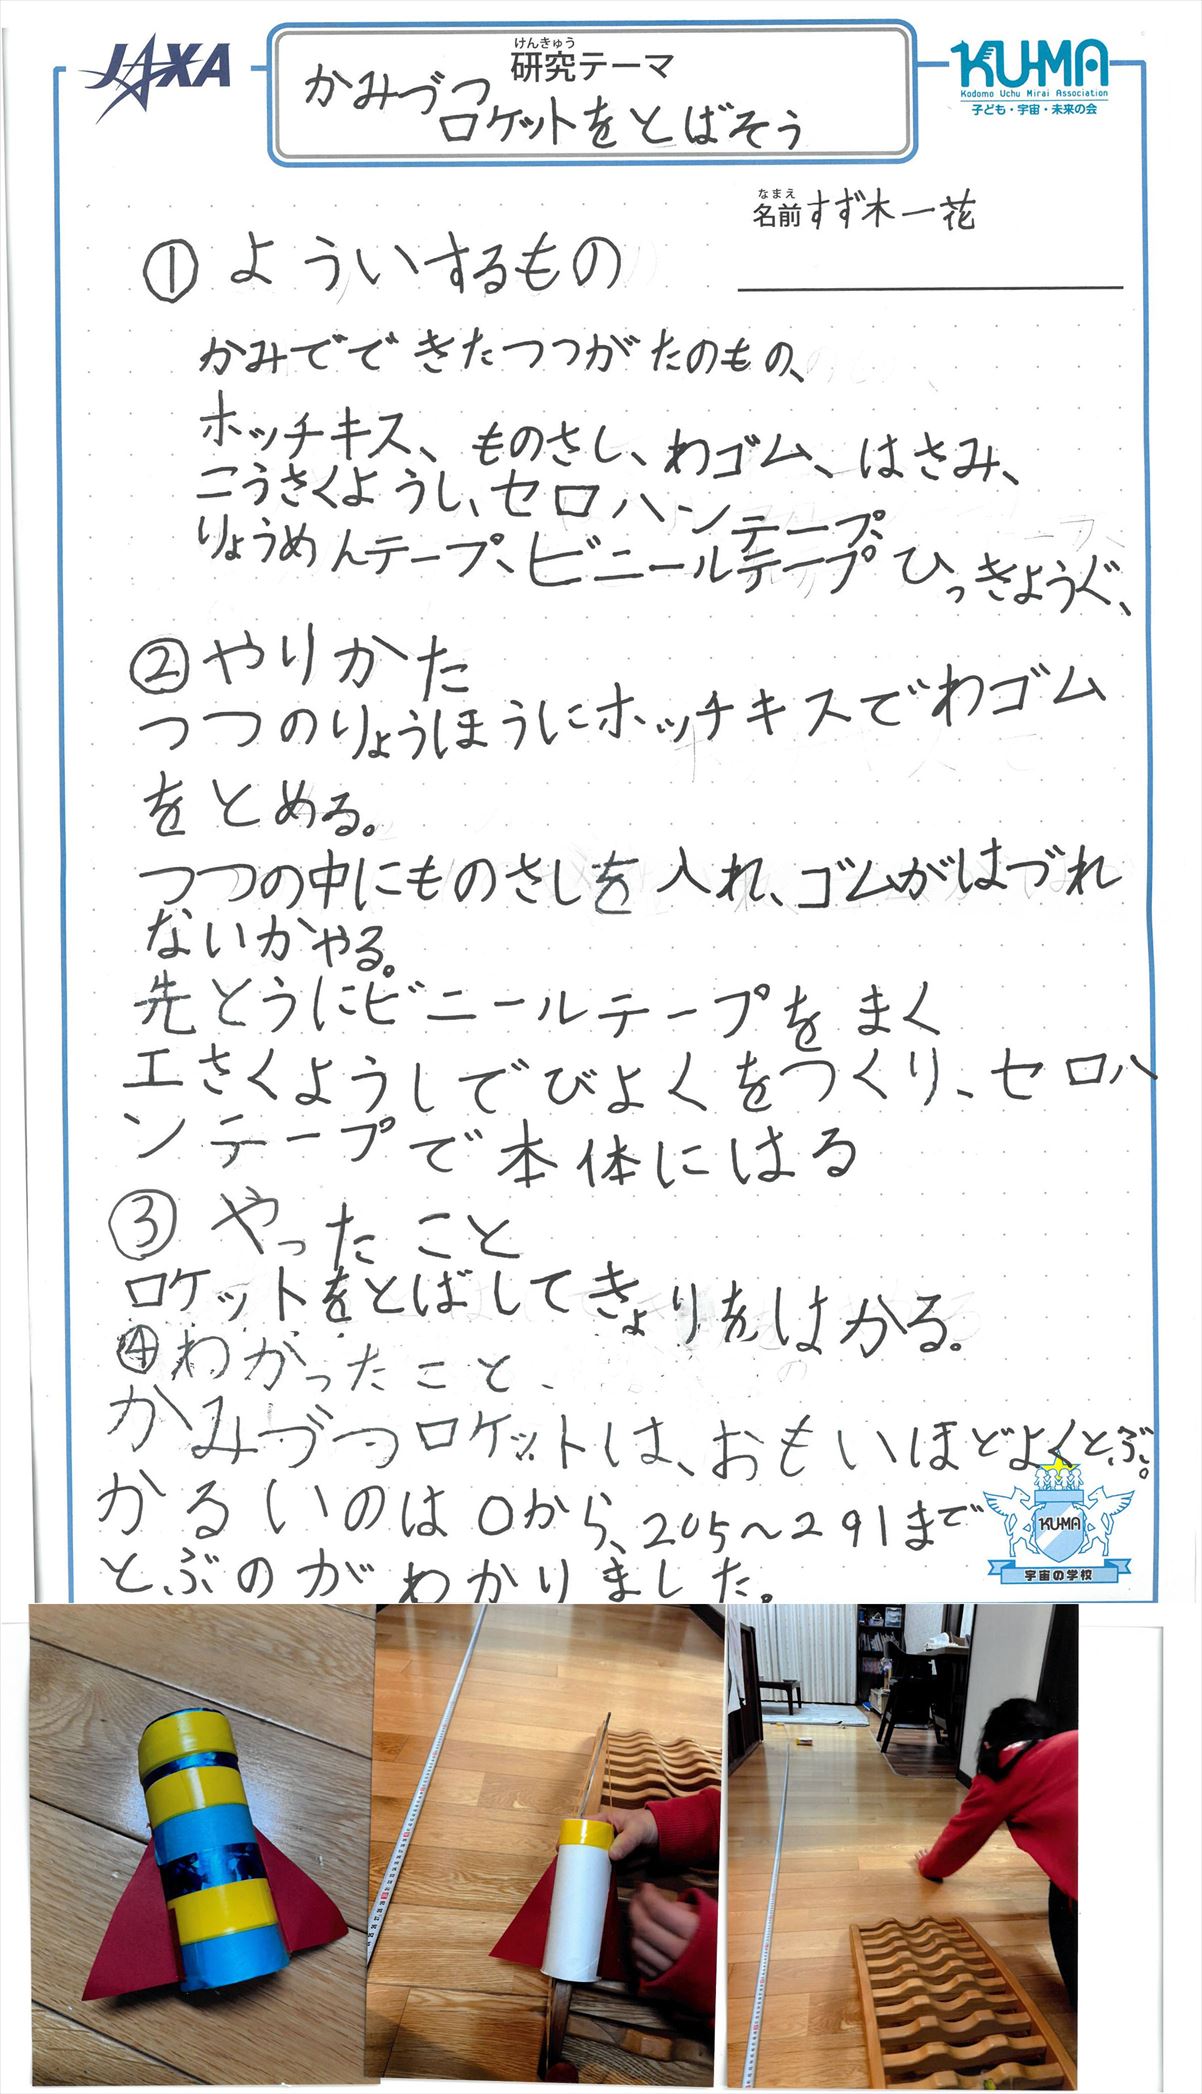 JAXA
けんきゅう
研究テーマ
かみづつ
ロケットをとばそう
KU-MA
Kodomo Uchu Mirai Association
子ども・宇宙・未来の会
なまえ
名前 すず木一花
① よういするもの
かみでできたつつがたのもの、
ホッチキス、ものさし、わゴム、はさみ、
こうさくようし、セロハンテープ、
りょうめんテープ、ビニールテープ ひっきようぐ、
② やりかた
つつのりょうほうにホッチキスでわゴム
をとめる。
つつの中にものさしを入れ、ゴムがはづれ
ないかやる。
先とうにビニールテープをまく
工さくようしでびよくをつくり、セロハ
ンテープで本体にはる
③ やったこと
ロケットをとばしてきょりをはかる。
④ わかったこと、
かみづつロケットは、おもいほどよくとぶ。
かるいのは0から、205〜291まで
とぶのがわかりました。
KU-MA
宇宙の学校